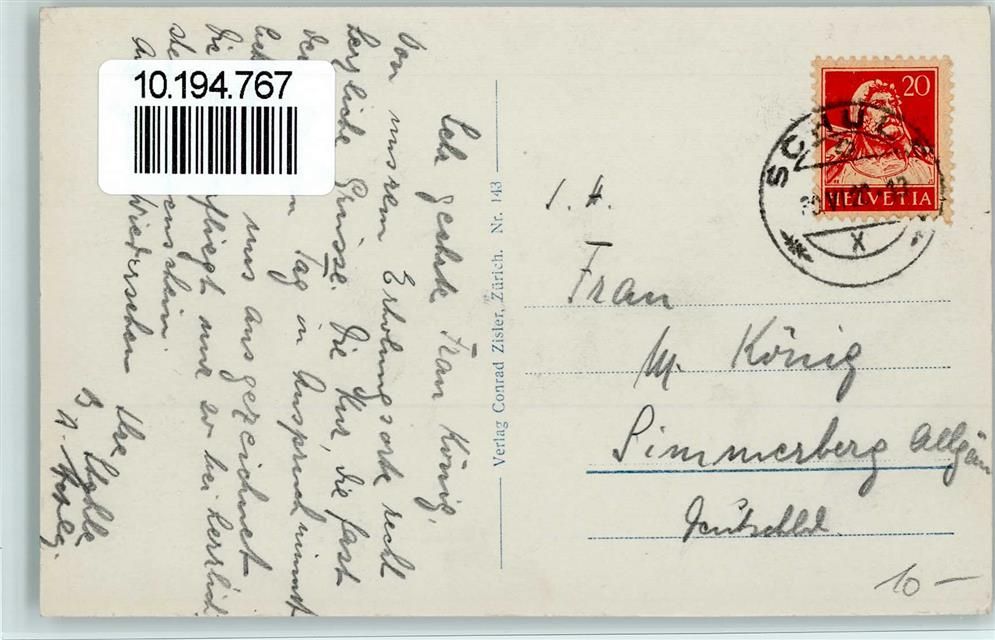 10.194.767
Sehr geehrte Frau König,
Von unsrem Erholungsorte recht
herzliche Grüsse. Die Kur, die fast
den Tag in Anspruch nimmt
uns ausgezeichnet
Die fliegt nur so bei herrlich
stem enschein.
Auf Wiedersehen
Ihre
Verlag Conrad Zisler, Zürich. Nr. 143
20
HELVETIA
SCHULS
VI
X
S. H.
Frau
M. König
Simmerberg Allgäu
Deutschld.
10 -